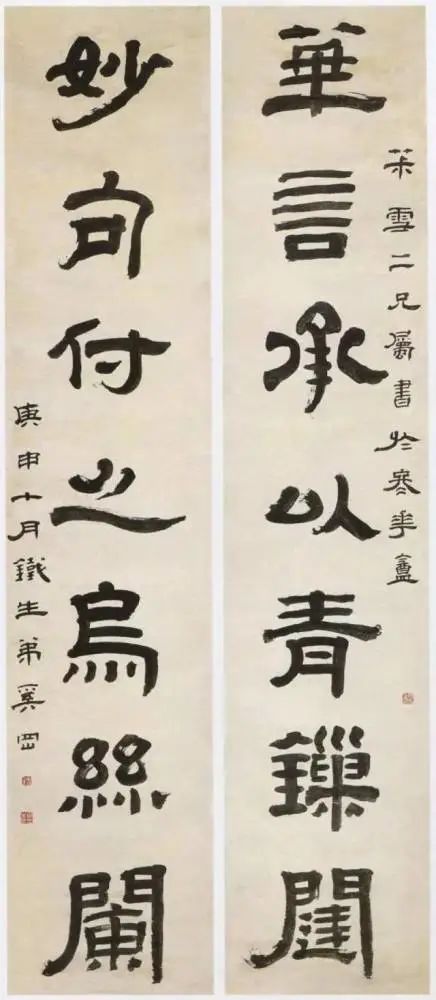 華言承以青鏁闥
雪二兄屬書於華盦
妙句付之烏絲闌
庚申十月鐵生弟奚岡